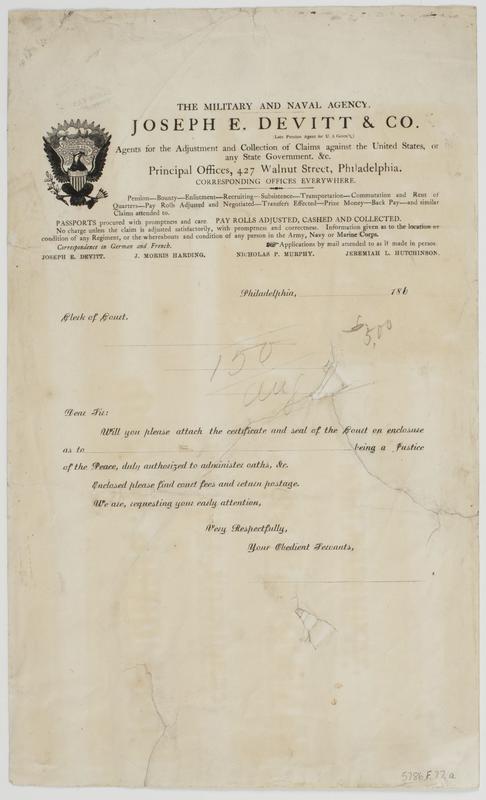 THE MILITARY AND NAVAL AGENCY.
JOSEPH E. DEVITT & CO.
(Late Pension Agent for U. S Gover't,)
Agents for the Adjustment and Collection of Claims against the United States, or
any State Government. &c.
Principal Offices, 427 Walnut Street, Philadelphia.
CORRESPONDING OFFICES EVERYWHERE.
Pension—Bounty—Enlistment—Recruiting—Subsistence—Transportation—Commutation and Rent of
Quarters—Pay Rolls Adjusted and Negotiated—Transfers Effected—Prize Money—Back Pay—and similar
Claims attended to.
PASSPORTS procured with promptness and care. PAY ROLLS ADJUSTED, CASHED AND COLLECTED.
No charge unless the claim is adjusted satisfactorily, with promptness and correctness. Information given as to the location or
condition of any Regiment, or the whereabouts and condition of any person in the Army, Navy or Marine Corps.
Correspondence in German and French. ☞Applications by mail attended to as if made in person.
JOSEPH E. DEVITT. J. MORRIS HARDING. NICHOLAS P. MURPHY. JEREMIAH L. HUTCHINSON.
Philadelphia, 186
Clerk of Court.
5,00
150
Dear Sir:
Will you please attach the certificate and seal of the Court on enclosure
as to being a Justice
of the Peace, duly authorized to administer oaths, &c.
Enclosed please find court fees and return postage.
We are, requesting your early attention,
Very Respectfully,
Your Obedient Servants,
5786.F.77,a